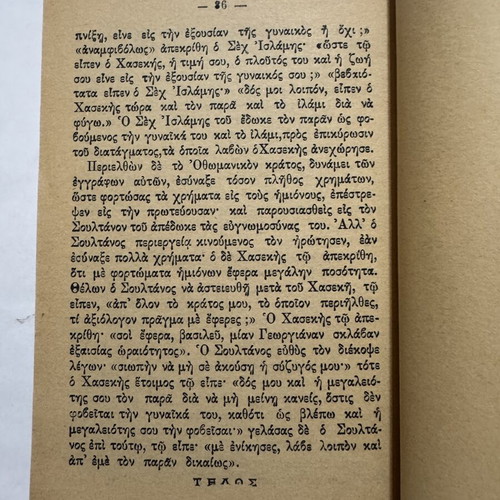 — 86 —
πνίξῃ, εἶνε εἰς τὴν ἐξουσίαν τῆς γυναικὸς ἢ ὄχι;»
«ἀναμφιβόλως» ἀπεκρίθη ὁ Σὲχ Ἰσλάμης· «ὥστε τῷ
εἶπεν ὁ Χασεκῆς, ἡ τιμή σου, ὁ πλοῦτός του καὶ ἡ ζωή
σου εἶνε εἰς τὴν ἐξουσίαν τῆς γυναικός σου;» «βεβαιό-
τατα εἶπεν ὁ Σὲχ Ἰσλάμης·» «δός μοι λοιπόν, εἶπεν ὁ
Χασεκῆς τώρα καὶ τὸν παρᾶ καὶ τὸ ἰλάμι διὰ νὰ
φύγω.» Ὁ Σὲχ Ἰσλάμης τοῦ ἔδωκε τὸν παρᾶν ὡς φο-
βούμενος τὴν γυναῖκά του καὶ τὸ ἰλάμι, πρὸς ἐπικύρωσιν
τοῦ διατάγματος, τὰ ὁποῖα λαβὼν ὁ Χασεκῆς ἀνεχώρησε.
Περιελθὼν δὲ τὸ Ὀθωμανικὸν κράτος, δυνάμει τῶν
ἐγγράφων αὐτῶν, ἐσύναξε τόσον πλῆθος χρημάτων,
ὥστε φορτώσας τὰ χρήματα εἰς τοὺς ἡμιόνους, ἐπέστρε-
ψεν εἰς τὴν πρωτεύουσαν· καὶ παρουσιασθεὶς εἰς τὸν
Σουλτάνον τοῦ ἀπέδωκε τὰς εὐγνωμοσύνας του. Ἀλλ' ὁ
Σουλτάνος περιεργείᾳ κινούμενος τὸν ἠρώτησεν, ἐὰν
ἐσύναξε πολλὰ χρήματα· ὁ δὲ Χασεκῆς τῷ ἀπεκρίθη,
ὅτι μὲ φορτώματα ἡμιόνων ἔφερα μεγάλην ποσότητα.
Θέλων ὁ Σουλτάνος νὰ ἀστειευθῇ μετὰ τοῦ Χασεκῆ, τῷ
εἶπεν, «ἀπ' ὅλον τὸ κράτος μου, τὸ ὁποῖον περιῆλθες,
τί ἀξιόλογον πρᾶγμα μὲ ἔφερες;» Ὁ Χασεκῆς τῷ ἀπε-
κρίθη· «σοὶ ἔφερα, βασιλεῦ, μίαν Γεωργιάναν σκλάβαν
ἐξαισίας ὡραιότητος». Ὁ Σουλτάνος εὐθὺς τὸν διέκοψε
λέγων· «σιωπὴν νὰ μὴ σὲ ἀκούσῃ ἡ σύζυγός μου·» τότε
ὁ Χασεκῆς ἕτοιμος τῷ εἶπε· «δός μου καὶ ἡ μεγαλειό-
της σου τὸν παρᾶ διὰ νὰ μὴ μείνῃ κανείς, ὅστις δὲν
φοβεῖται τὴν γυναῖκα του, καθότι ὡς βλέπω καὶ ἡ
μεγαλειότης σου τὴν φοβεῖσαι·» γελάσας δὲ ὁ Σουλτά-
νος ἐπὶ τούτῳ, τῷ εἶπε· «μὲ ἐνίκησες, λάβε λοιπὸν καὶ
ἀπ' ἐμὲ τὸν παρᾶν δικαίως».
ΤΕΛΟΣ